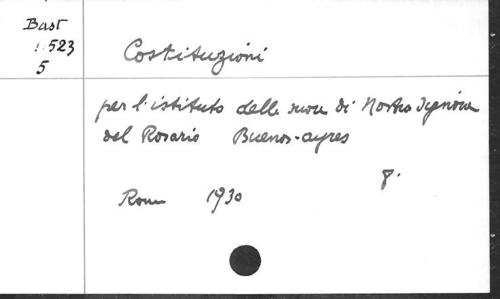 Bast
1.523
5
Costituzioni
per l'istituto delle suore di Nostra Signora
del Rosario Buenos-ayres
8.
Roma 1930